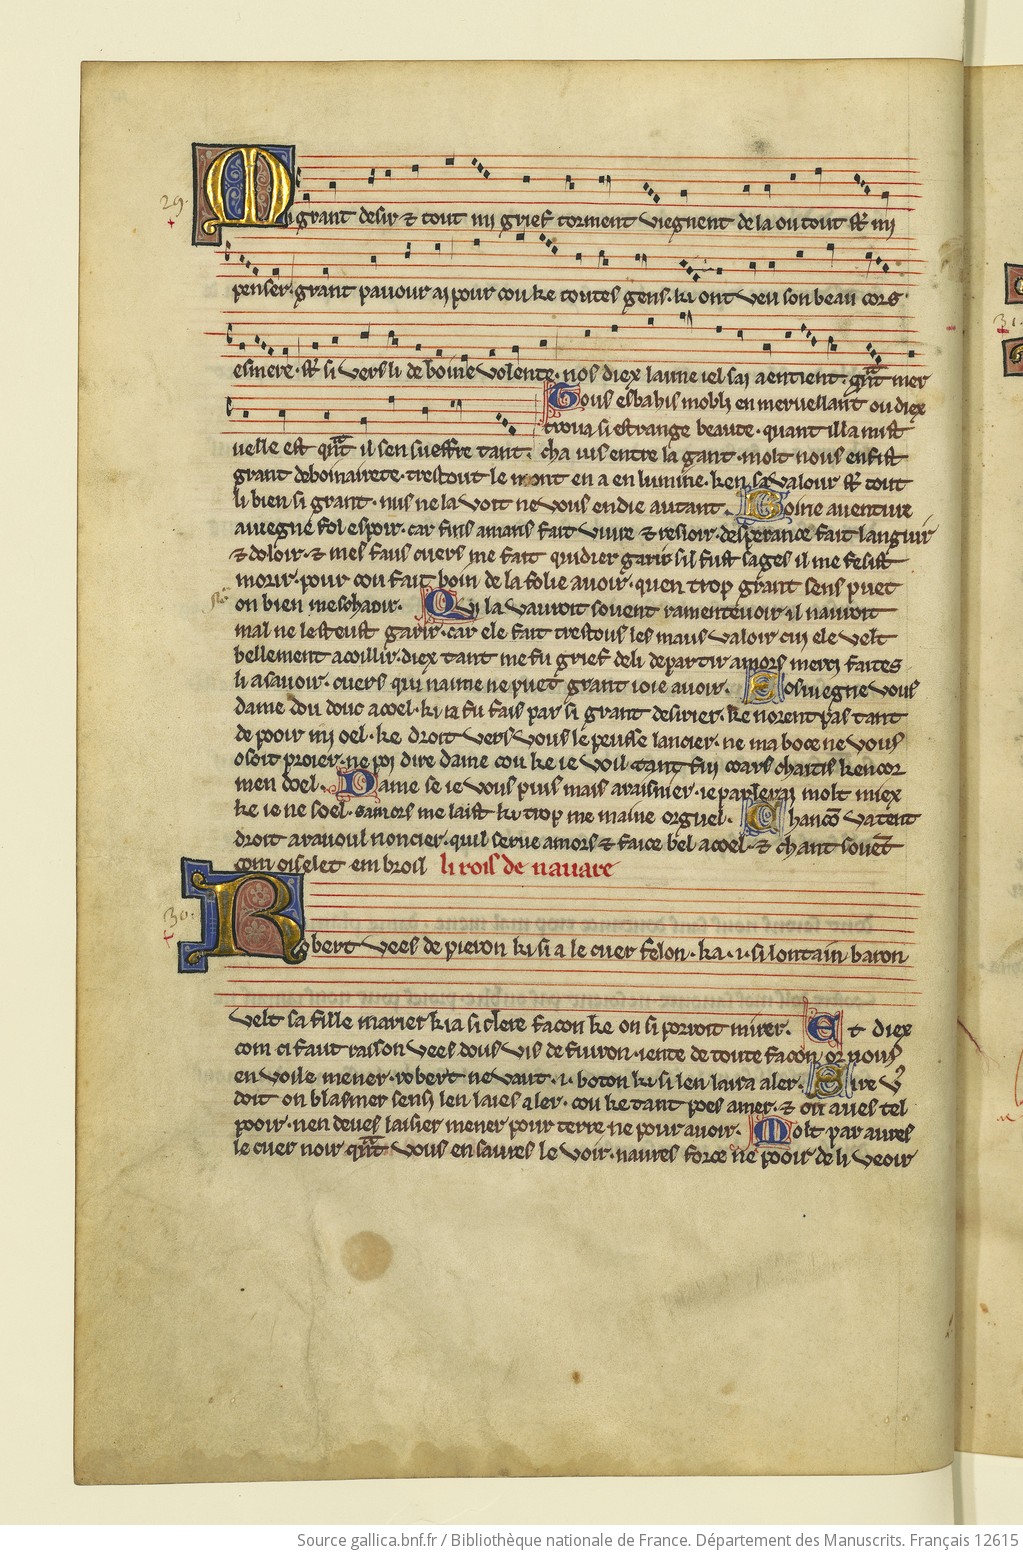 29.
Mi grant desir & tout mi grief torment viegnent de la ou tout st mi
penser. grant pauour ai pour cou ke toutes gens. ki ont veu son beau cors
esmere. st si vers li de boine volente. nos diex laime iel sai a entient. qnt mer
Tous esbahis mobli en meruellant ou diex
troua si estrange beaute. quant il la mist
uelle est qnt il sen sueffre tant.
cha ius entre la gant. molt nous en fist
grant deboinairete. trestout le mont en a enlumine. ken sa valour st tout
li bien si grant. nus ne la voit ne vous en die autant. Boine auenture
auiegne fol espoir. car fins amans fait viure & resioir. desperance fait languir
& doloir. & mes faus cuers me fait quidier garir sil fust sages il me fesist
morir. pour cou fait boin de la folie auoir. quen trop grant sens puet
on bien meschaoir. Qui la vauroit souent ramenteuoir il nauroit
mal ne lesteust garir. car ele fait trestous les maus valoir cui ele velt
bellement acoillir. diex tant me fu grief de li departir amors merci faites
li asauoir. cuers qui naime ne puet grant ioie auoir. Esouiegne vous
dame dou douc acoel. ki ia fu fais par si grant desirier. ke norent pas tant
de pooir mi oel. ke droit vers vous le peusse lancier. ne ma boce ne vous
osoit proier. ne poi dire dame cou ke ie voil tant fui coars chaitis kencor
men doel. Dame se ie vous puis mais araisnier. ie parlerai molt miex
ke ie ne soel. samors me laist ki trop me maine orguel. Chancon va tent
droit a rauoul noncier. quil serue amors & faice bel acoel. & chant souet
com oiselet em broil li rois de nauare
30.
Robert vees de pieron ki si a le cuer felon. ka .i. si lontain baron
velt sa fille marier kia si clere facon ke on si porroit mirer. Et diex
com ci faut raison vees dous vis de fuiron. iente de toute facon or nous
en voile mener. robert ne vaut .i. boton ki si len laira aler. Sire v9
doit on blasmer sens len laies aler. cou ke tant poes amer. & ou aues tel
pooir. nen deues laisier mener pour terre ne pour auoir. Molt par aures
le cuer noir qnt vous en saures le voir. naures force ne pooir de li veoir
31.
Source gallica.bnf.fr / Bibliothèque nationale de France. Département des Manuscrits. Français 12615